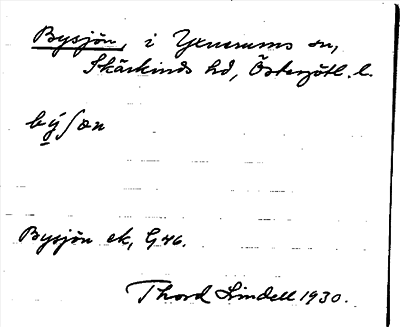 Bysjön, i Yxnerums sn,
Skärkinds hd, Östergötl. l.
bý̱ʃœn
Bysjön ek, G 46.
Thord Lindell 1930.